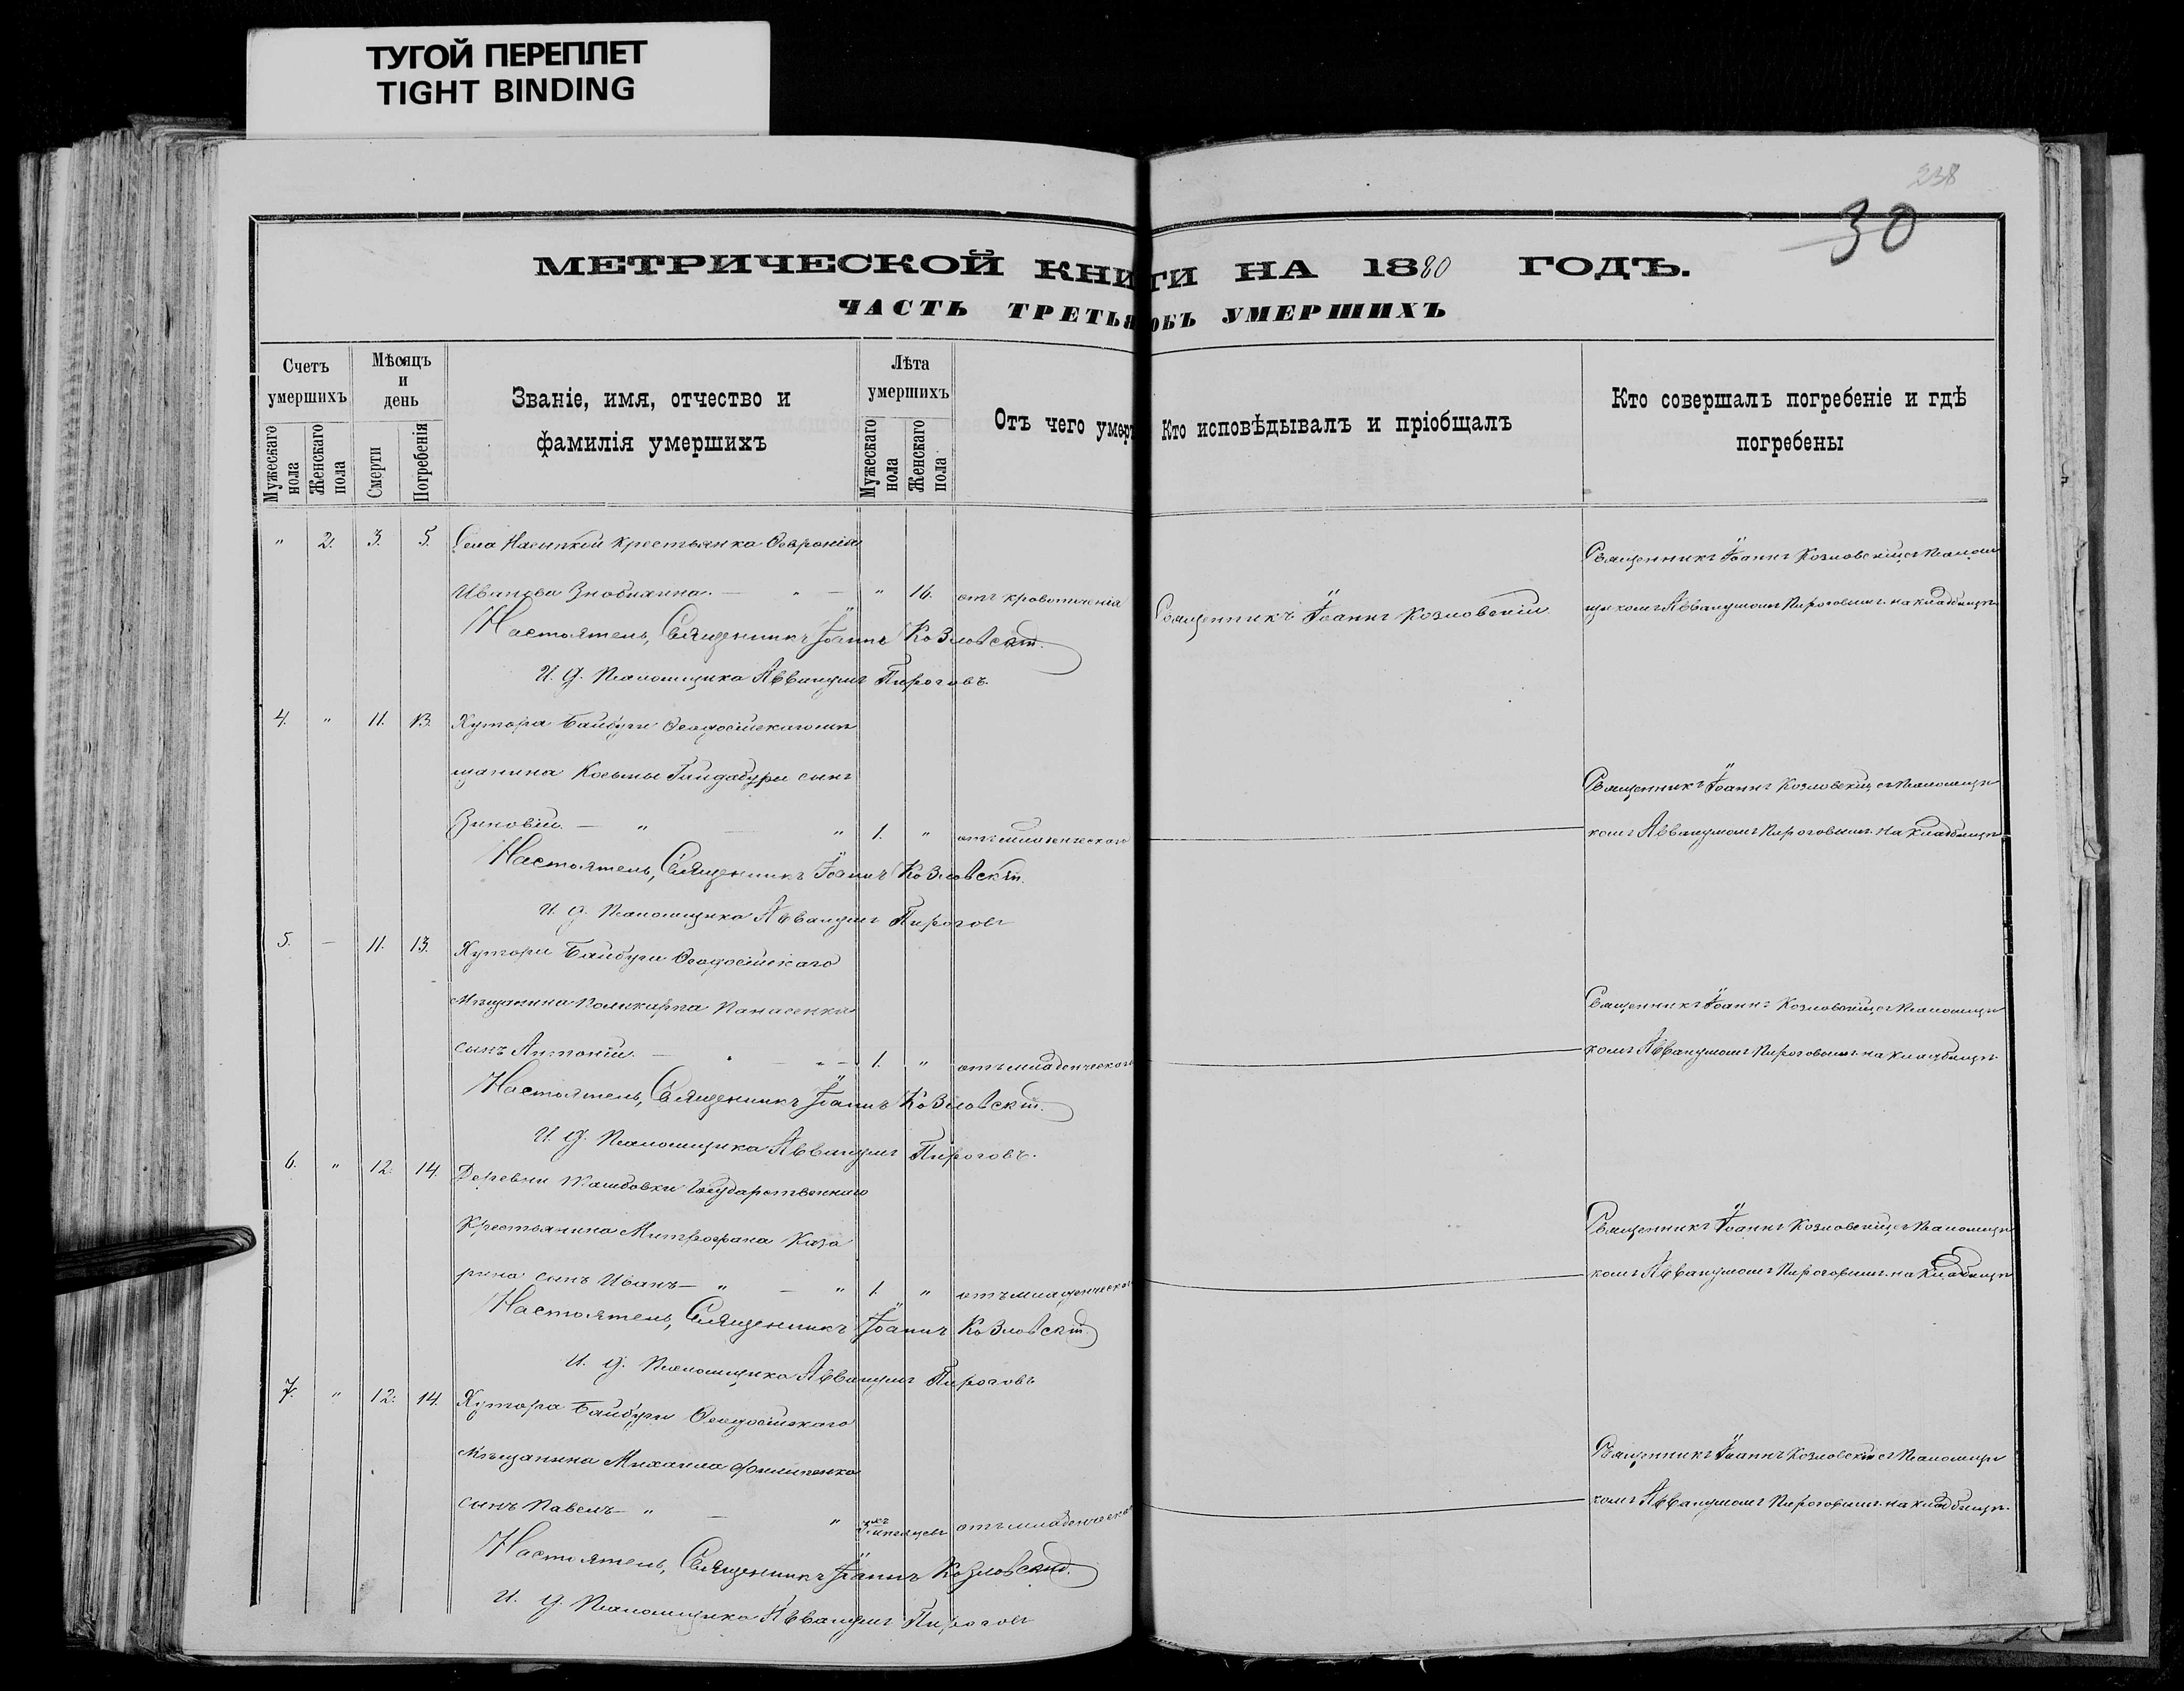 ТУГОЙ ПЕРЕПЛЕТ
TIGHT BINDING
238
30
МЕТРИЧЕСКОЙ КНИГИ НА 1880 ГОДЪ.
ЧАСТЬ ТРЕТЬЯ ОБЪ УМЕРШИХЪ
Счетъ умершихъ
Мужескаго пола
Женскаго пола
Мѣсяцъ и день
Смерти
Погребенія
Званіе, имя, отчество и фамилія умершихъ
Лѣта умершихъ
Мужескаго пола
Женскаго пола
Отъ чего умер
Кто исповѣдывалъ и пріобщалъ
Кто совершалъ погребеніе и гдѣ погребены
" 2. 3. 5. Села Насыпкой крестьянка Февронія
Священникъ Іоаннъ Козловскій съ Псалом
Иванова Знобихина. — " — " 16. отъ кровотеченія Священникъ Іоаннъ Козловскій
щикомъ Аввакумомъ Пироговымъ на кладбищѣ
Настоятель, Священникъ Іоаннъ Козловскій.
И. д. Псаломщика Аввакумъ Пироговъ.
4. " 11. 13. Хутора Байбуги Ѳеодосійскаго мѣ
щанина Косьмы Гайдабуры сынъ
Священникъ Іоаннъ Козловскій, съ Псаломщи
Зиновій. — " — " 1. " отъ младенческаго
комъ Аввакумомъ Пироговымъ на кладбищѣ
Настоятель, Священникъ Іоаннъ Козловскій.
И. д. Псаломщика Аввакумъ Пироговъ
5. — 11. 13. Хутора Байбуги Ѳеодосійскаго
мѣщанина Поликарпа Панасенка
Священникъ Іоаннъ Козловскій съ Псаломщи
сынъ Антоній. — " — " — 1. " отъ младенческаго
комъ Аввакумомъ Пироговымъ на кладбищѣ
Настоятель, Священникъ Іоаннъ Козловскій.
И. д. Псаломщика Аввакумъ Пироговъ.
6. " 12. 14. Деревни Государственнаго
Крестьянина Митрофана Каза
Священникъ Іоаннъ Козловскій, съ Псаломщи
рина сынъ Иванъ — " — " 1. " отъ младенческаго
комъ Аввакумомъ Пироговымъ на кладбищѣ
Настоятель, Священникъ Іоаннъ Козловскій
И. д. Псаломщика Аввакумъ Пироговъ
7. " 12. 14. Хутора Байбуги Ѳеодосійскаго
мѣщанина Михаила Филипенка
Священникъ Іоаннъ Козловскій съ Псаломщи
сынъ Павелъ — " — " мѣсяцевъ отъ младенческа
комъ Аввакумомъ Пироговымъ на кладбищѣ.
Настоятель, Священникъ Іоаннъ Козловскій.
И. д. Псаломщика Аввакумъ Пироговъ